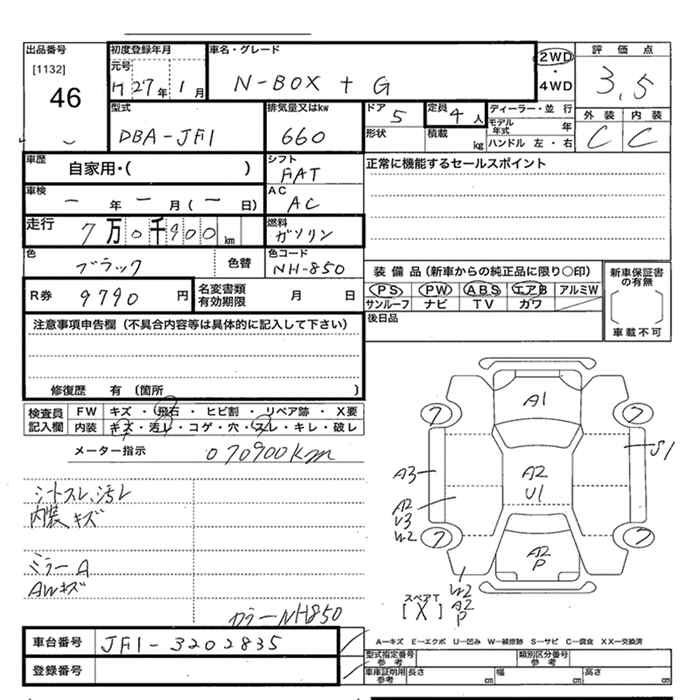 出品番号
[1132]
46
初度登録年月
元号
H 27 年 1 月
車名・グレード
N-BOX + G
2WD
・
4WD
評 価 点
3.5
型式
DBA-JF1
排気量又はkw
660
ドア 5
形状
定員 4 人
積載 kg
ディーラー・並 行
モデル年式 年
ハンドル 左・右
外 装 内 装
C C
車歴
自家用・( )
シフト
FAT
正常に機能するセールスポイント
車検
ー 年 ー 月 ( ー 日)
AC
AC
走行
7 万 0 千 900 km
燃料
ガソリン
色
ブラック
色替
色コード
NH-850
R券 9790 円
名変書類
有効期限
月 日
装 備 品 (新車からの純正品に限り○印)
PS PW ABS エアB アルミW
サンルーフ ナビ TV ガワ
新車保証書
の有無
車載不可
後日品
注意事項申告欄 (不具合内容等は具体的に記入して下さい)
修復歴 有 (箇所 )
検査員
記入欄
FW キズ・飛石・ヒビ割・リペア跡・X要
内装 キズ・汚レ・コゲ・穴・スレ・キレ・破レ
メーター指示
070900km
シートスレ、汚レ
内装キズ
ミラーA
AWキズ
カラーNH850
A1
7 7
A3
A2
U1
S1
A2
U3
W2
7 7
A2
P
W2
A2
P
スペアT
[X]
A—キズ E—エクボ U—凹み W—補修跡 S—サビ C—腐食 XX—交換済
車台番号 JF1-3202835
登録番号
型式指定番号
参考
類別区分番号
参考
車庫証明用
参考
長さ cm 幅 cm 高さ cm